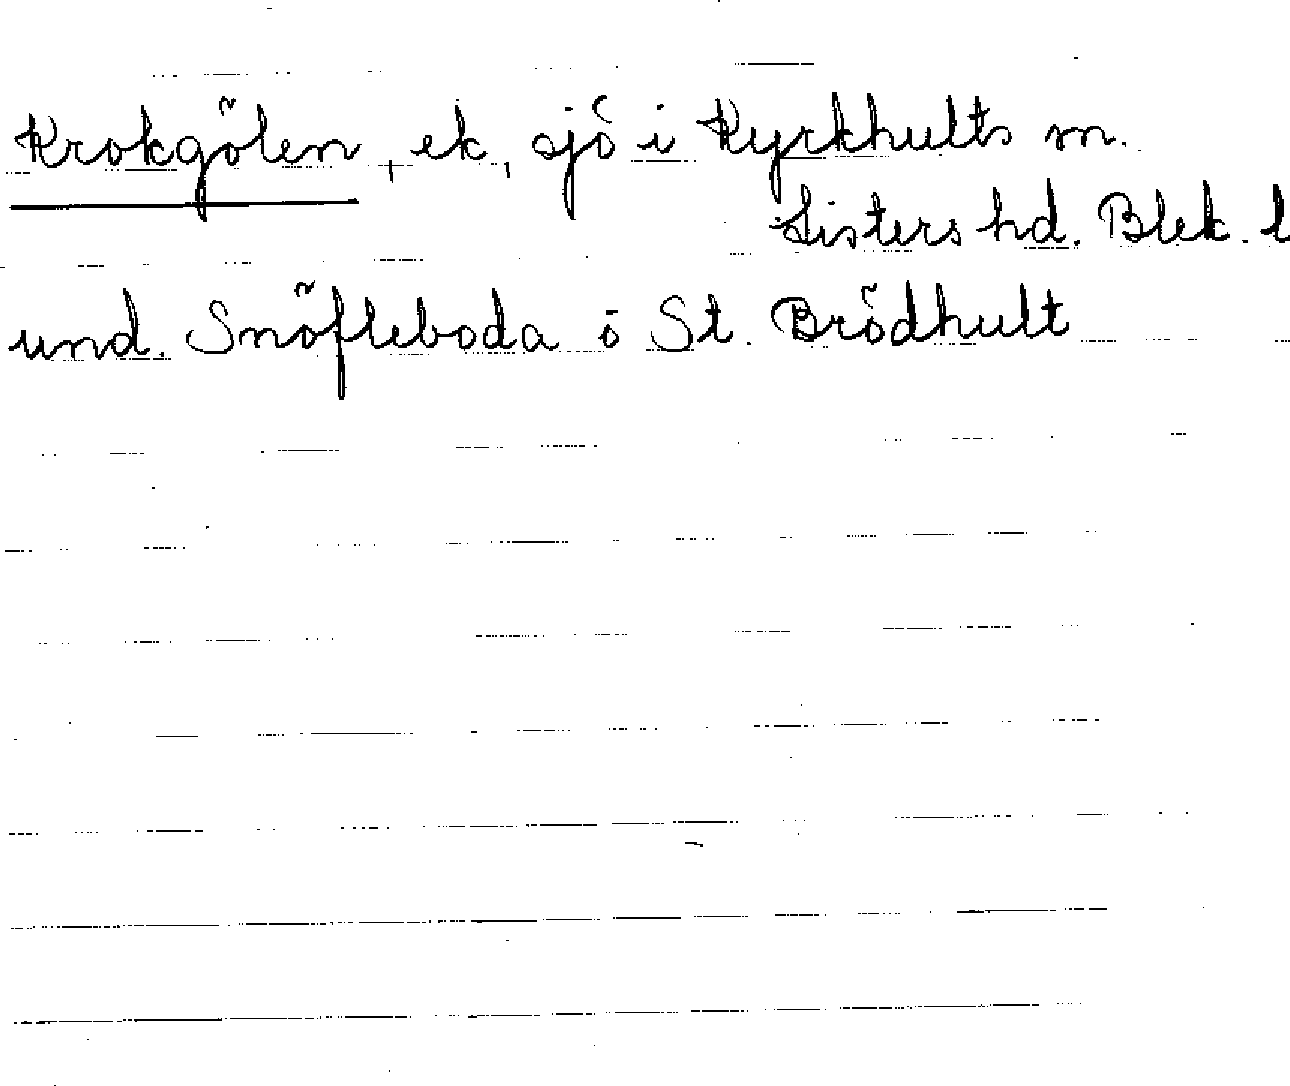 Krokgölen, ek, sjö i Kyrkhults sn.
Listers hd. Blek. l
und. Snöfleboda o St. Brödhult